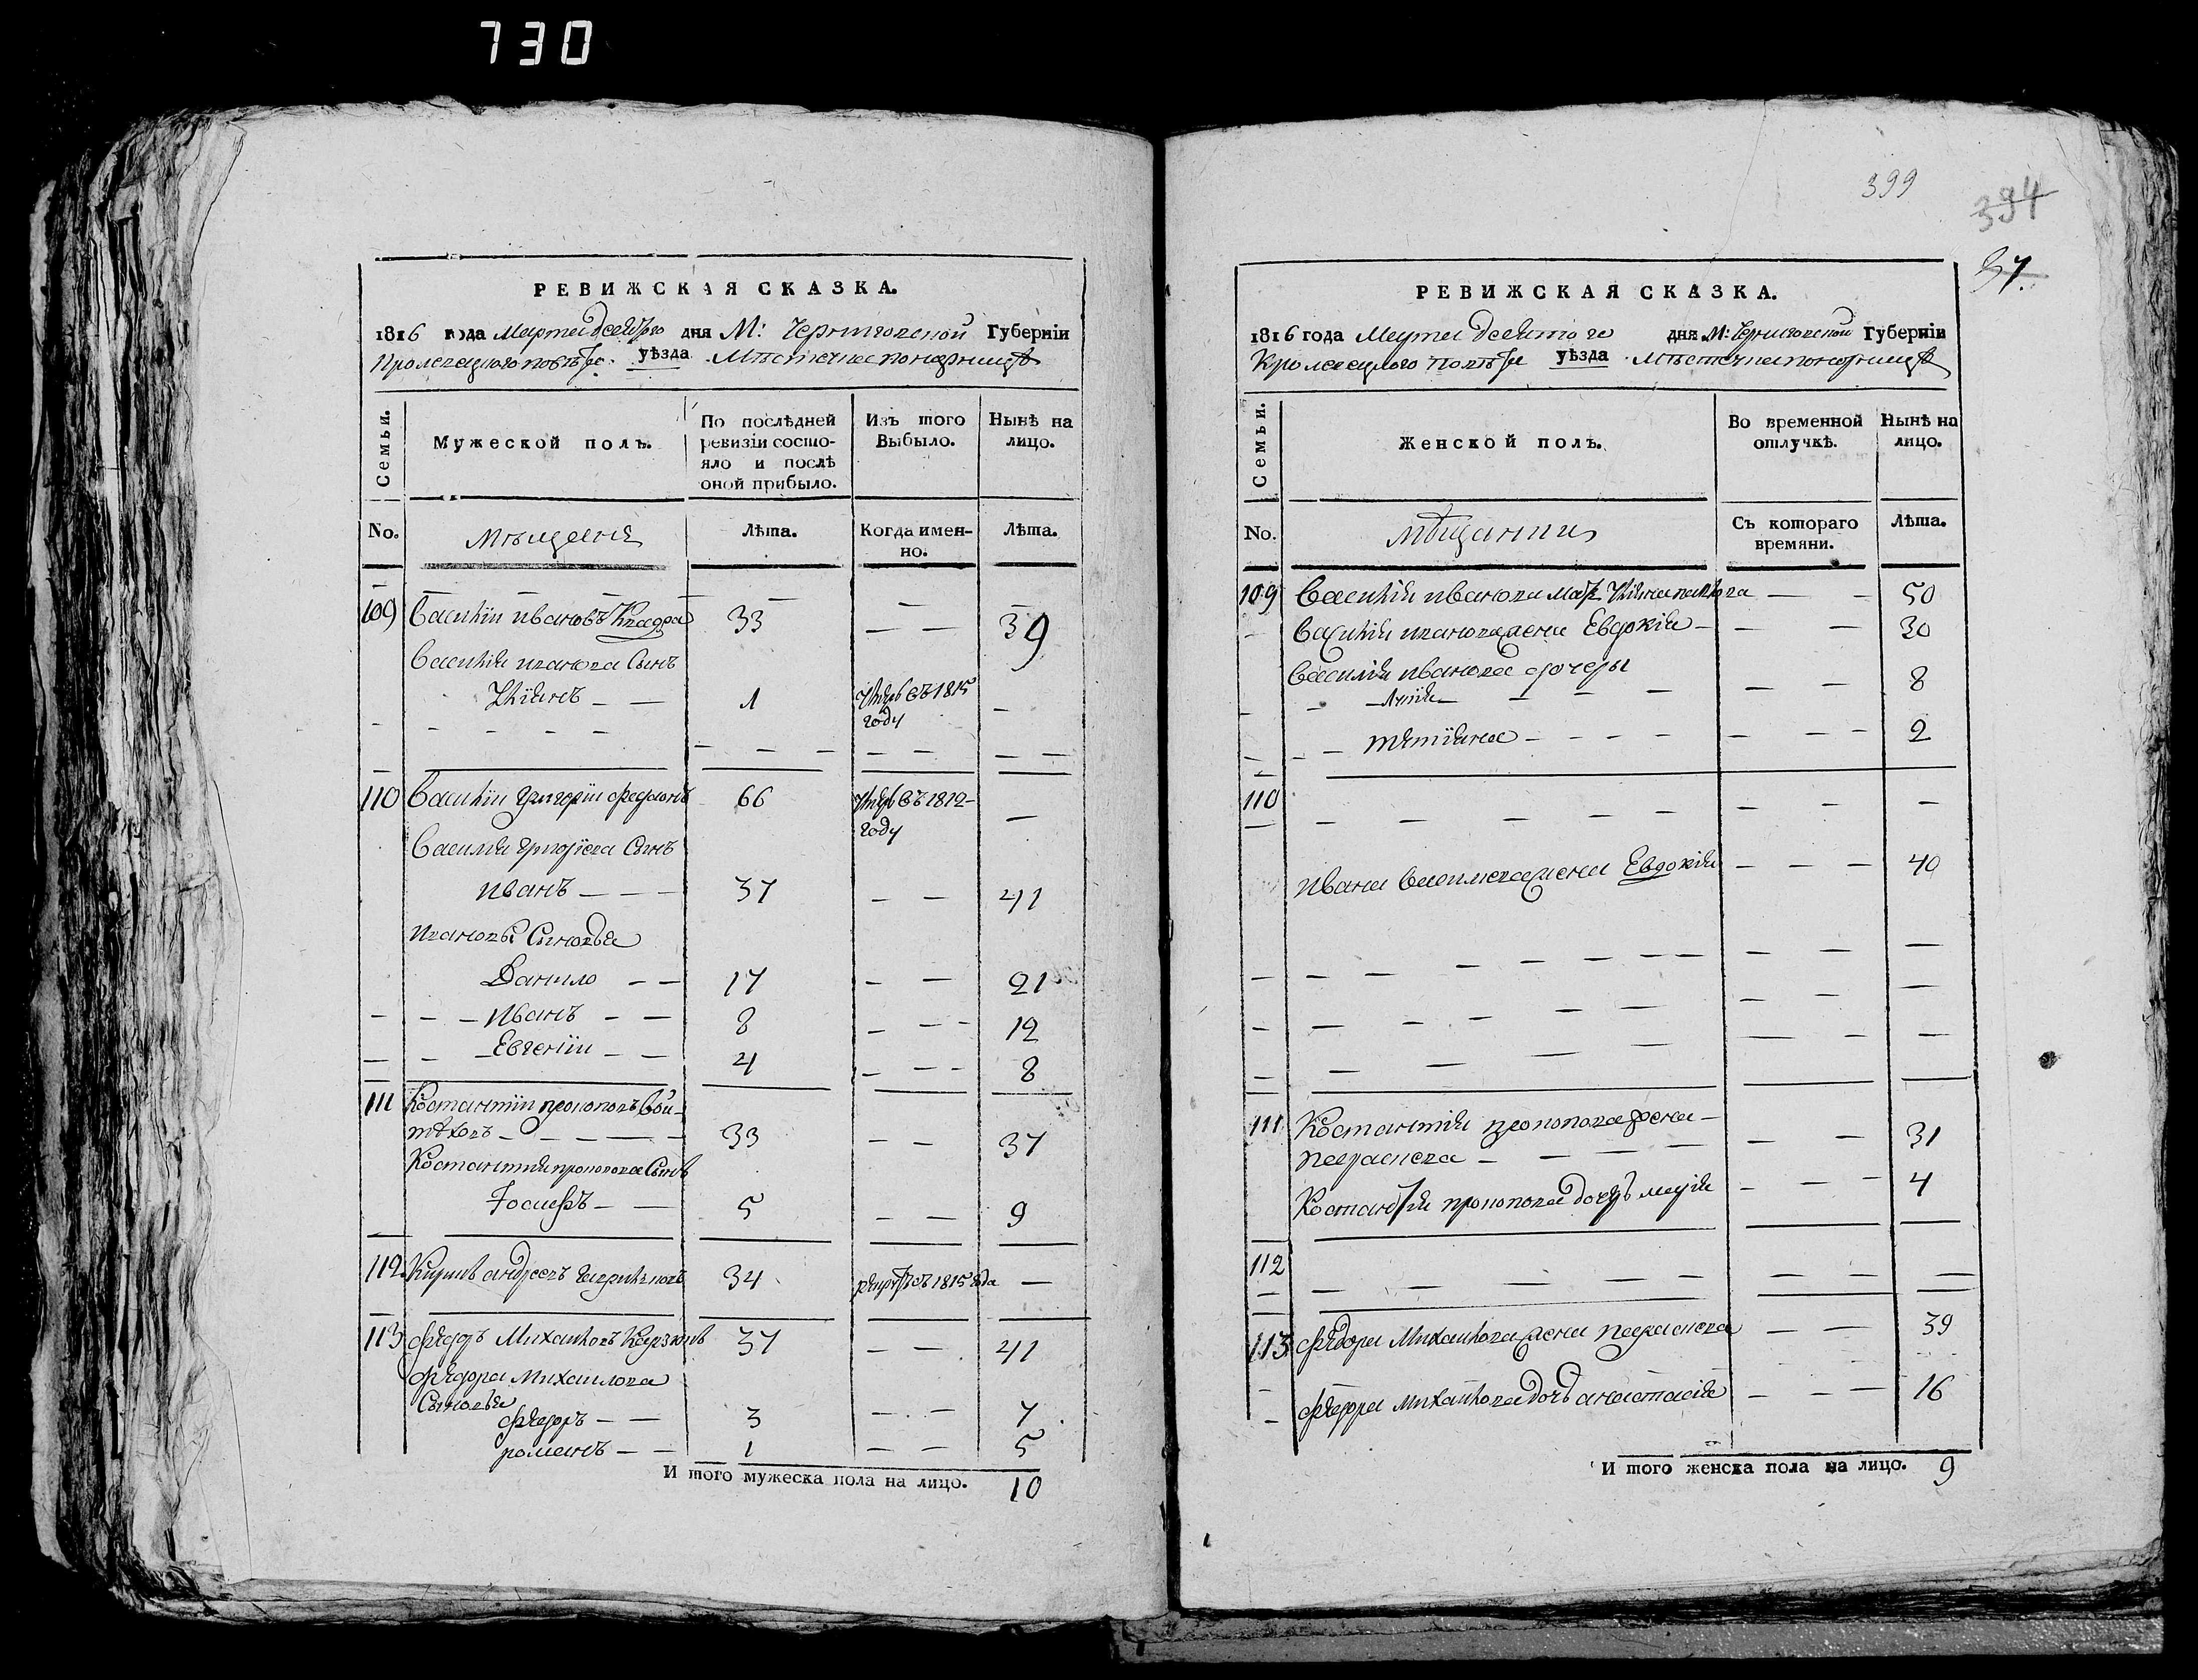 730
РЕВИЖСКАЯ СКАЗКА.
1816 года Марта десятого дня М: Черниговской Губерніи
Кролевецкого повѣта уѣзда Мѣстечка понорницѣ
Семьи.
Мужеской полъ.
По послѣдней ревизіи состояло и послѣ оной прибыло.
Изъ того Выбыло.
Нынѣ на лицо.
No.
Мѣщаня
Лѣта.
Когда именно.
Лѣта.
109 Василіи ивановъ 33 — — 39
Василія иванова Сынъ
Уліянъ — — 1 умръ въ 1815 году —
110 Василіи григоріи 66 умръ въ 1812 году —
Василія Сынъ
иванъ — — — 37 — — 41
ивановы Сыновья
Данило — — 17 — — 21
— — — иванъ — — 8 — — — 12
— — — Евгеніи — — 4 — — — 8
111 Костантіи прокоповъ
— — — — 33 — — 37
Костантія прокопова Сынъ
Іосифъ — — 5 — — 9
112 андреевъ 34 1815 года —
113 федоръ Михаиловъ 37 — — 41
федора Михаилова
Сыновья
федоръ — — 3 — — 7
романъ — — 1 — — 5
И того мужеска пола на лицо. 10
399
394
37.
РЕВИЖСКАЯ СКАЗКА.
1816 года Марта десятого дня М: Черниговской Губерніи
Кролевецкого повѣта уѣзда Мѣстечка понорницѣ
Семьи.
Женской полъ.
Во временной отлучкѣ.
Нынѣ на лицо.
No.
мѣщанки
Съ котораго времяни.
Лѣта.
109 Василія иванова — — 50
Василія иванова жена Евдокія — — — 30
Василія иванова дочеры
— — — — 8
татіяна — — — — — — — 2
110 — — — — — — — —
ивана василева жена Евдокія — — — 40
111 Костантія прокопова жена —
параскева — — — — — — 31
Костантія прокопова дочь марія — — — 4
112
— — — — — — — —
113 федора Михаилова жена параскева — — 39
федора михаилова дочь анастасія — — — 16
И того женска пола на лицо. 9